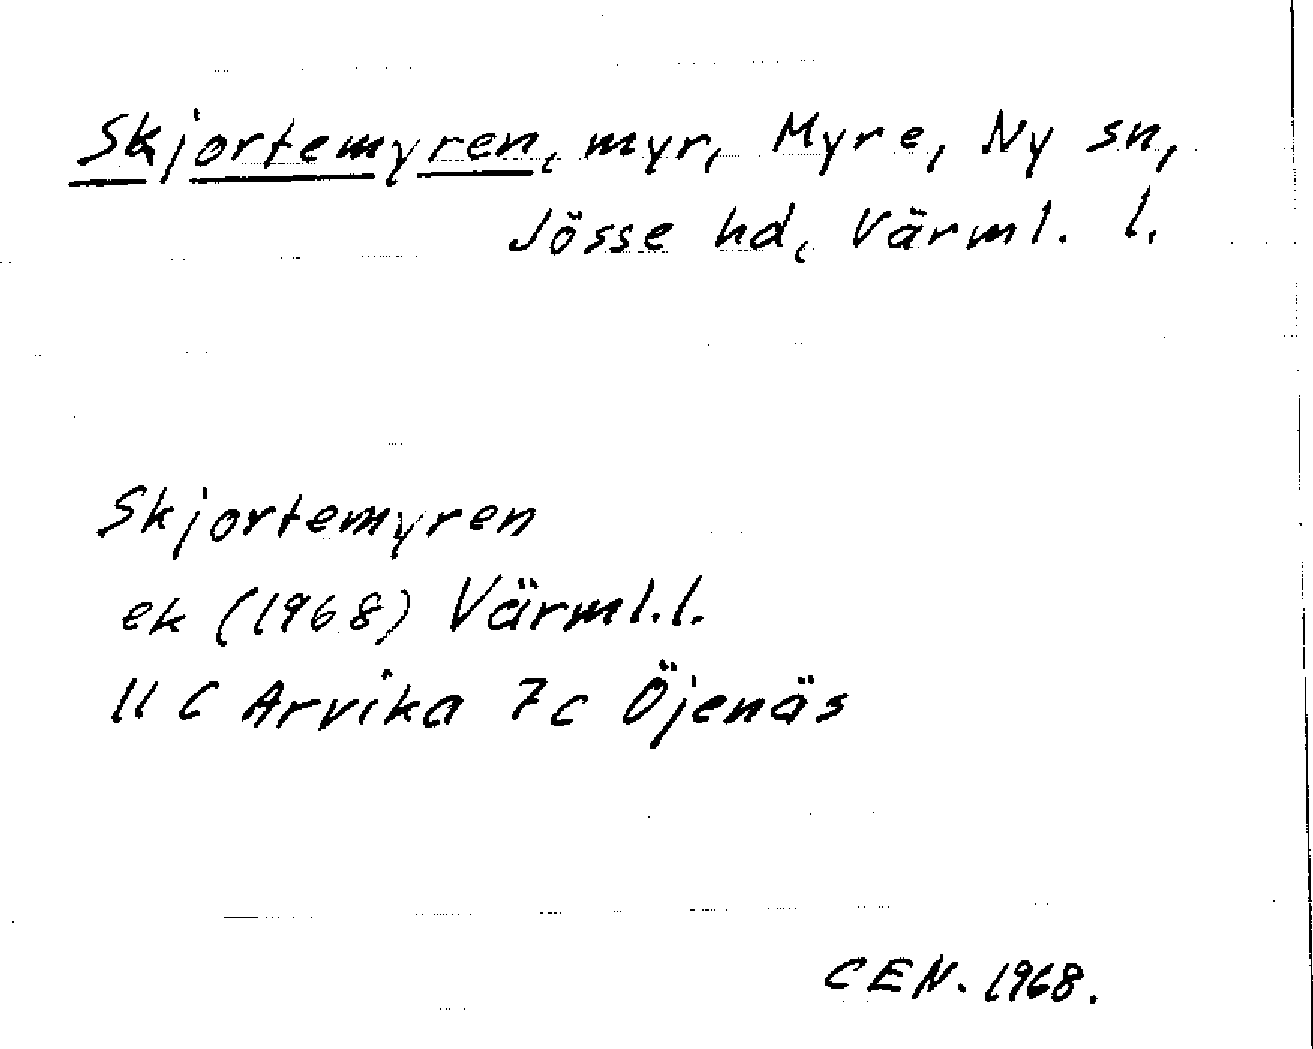 Skjortemyren, myr, Myre, Ny sn,
Jösse hd, Värml. l.
Skjortemyren
ek (1968) Värml.l.
11 C Arvika 7c Öjenäs
CEN. 1968.